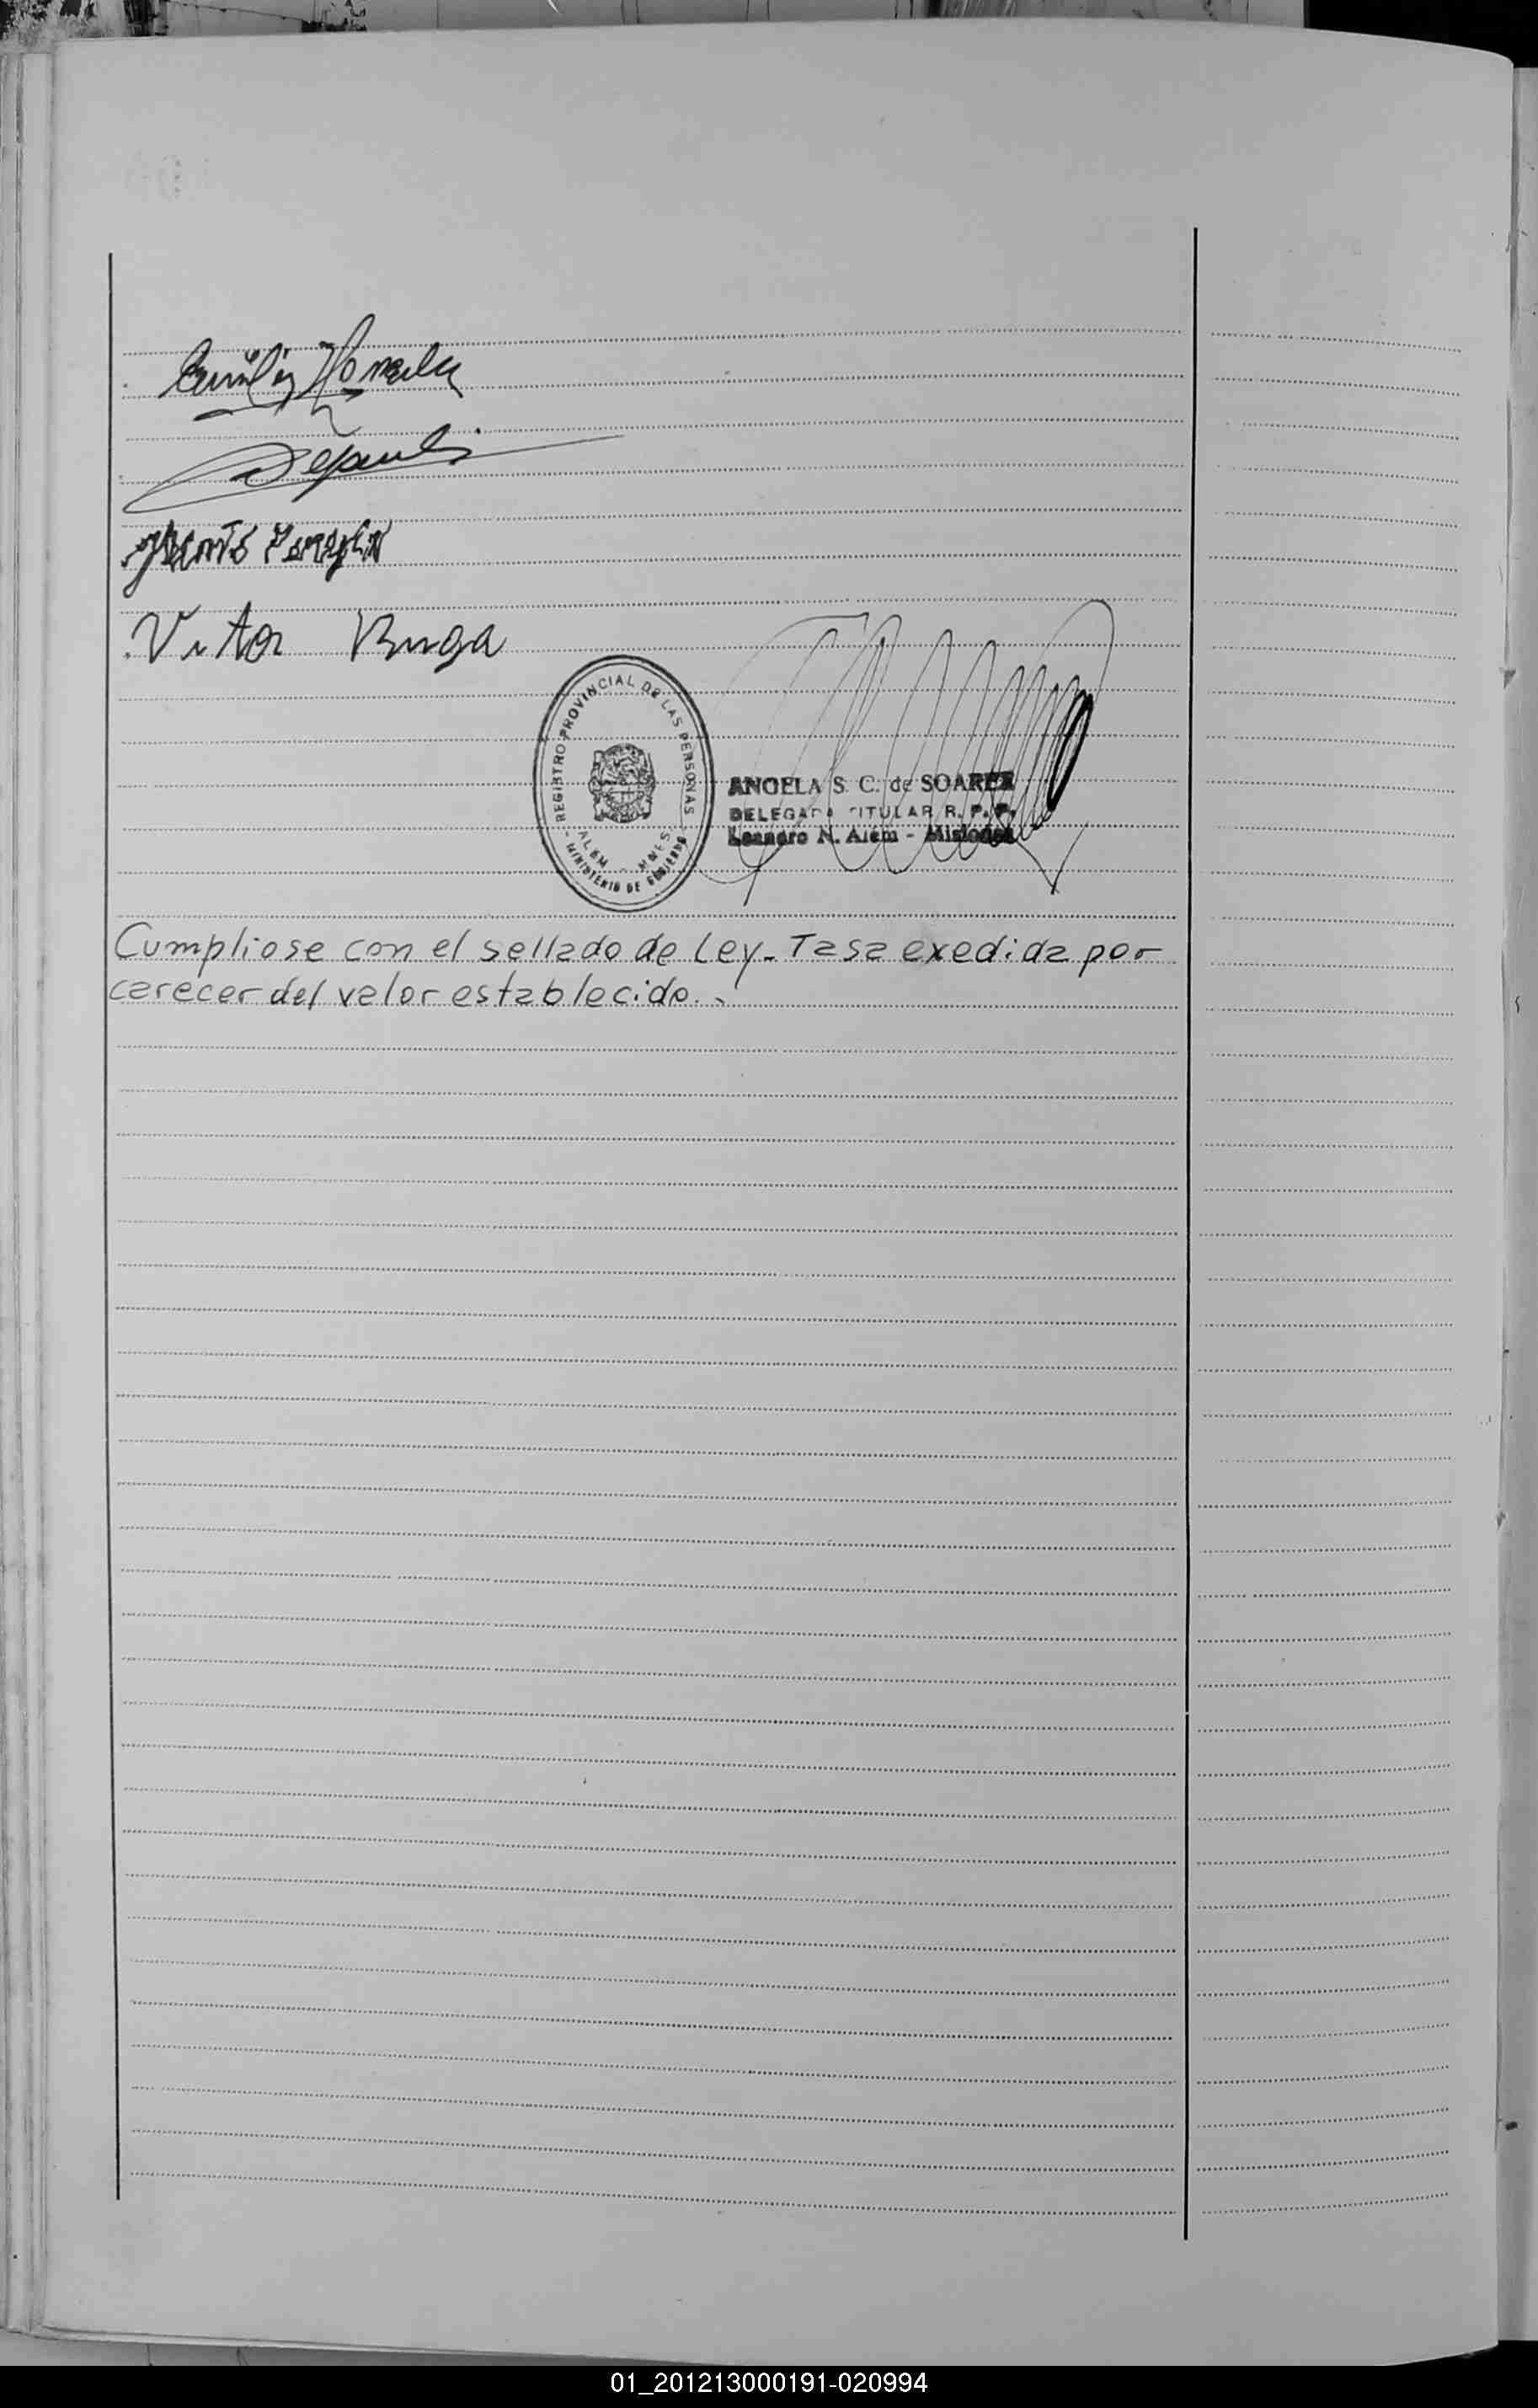 Victor Buga
REGISTRO PROVINCIAL DE LAS PERSONAS
ALEM - MNES
- MINISTERIO DE GOBIERNO -
ANGELA S. C. de SOAREZ
DELEGADA TITULAR R. P. P.
Leandro N. Alem - Misiones
Cumpliose con el sellado de Ley._ Tasa exedida por
carecer del valor establecido..
01_201213000191-020994